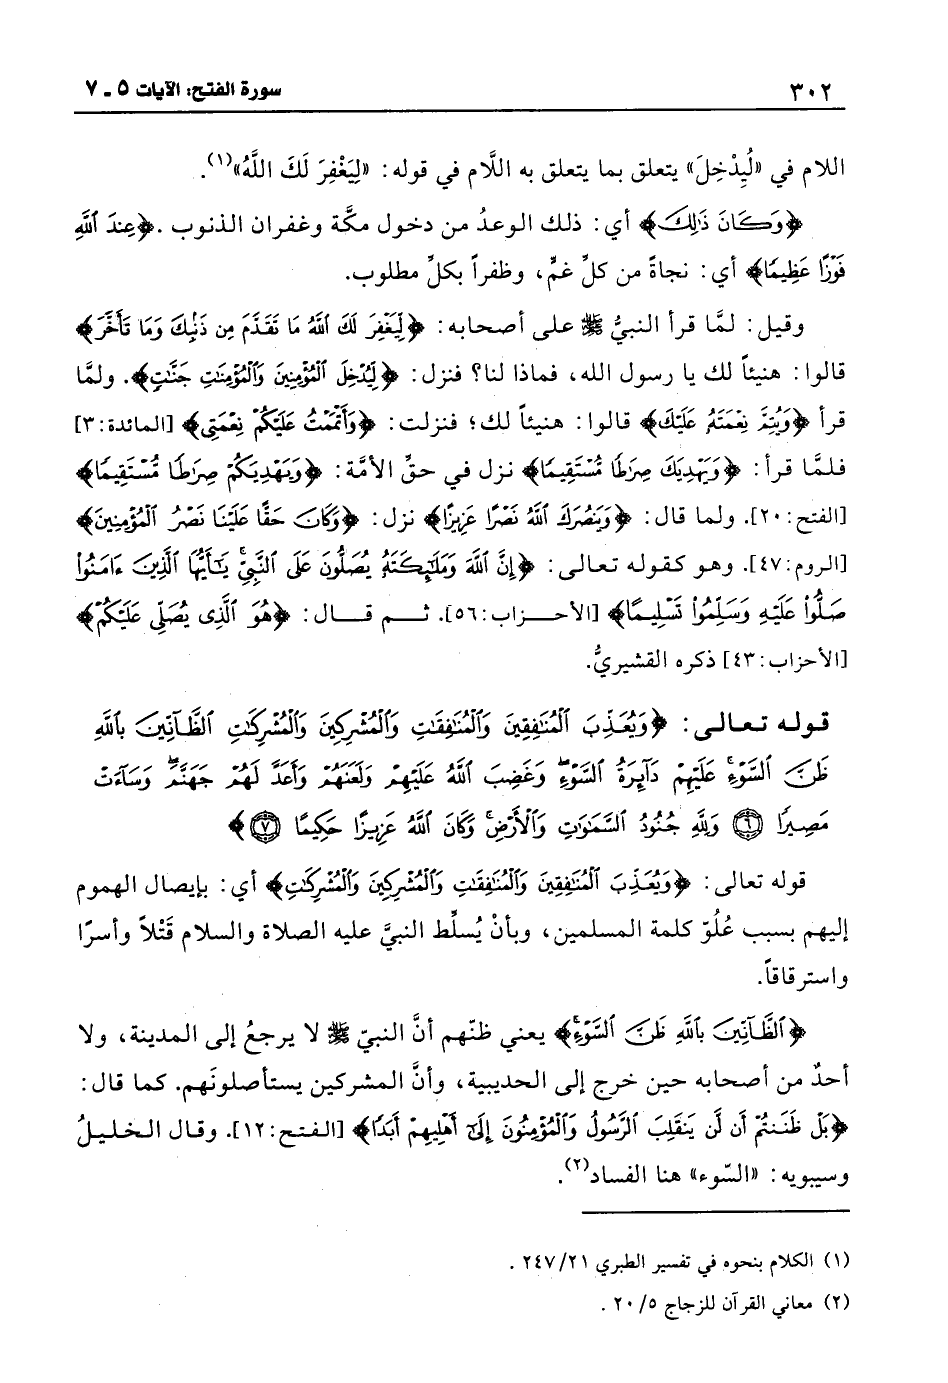 ٣٠٢ سورة الفتح: الآيات ٥ ـ ٧
اللام في «لِيُدْخِلَ» يتعلق بما يتعلق به اللَّام في قوله: «لِيَغْفِرَ لَكَ اللَّهُ»(١).
﴿وَكَانَ ذَٰلِكَ﴾ أي: ذلك الوعدُ من دخول مكَّة وغفران الذنوب. ﴿عِندَ ٱللَّهِ
فَوْزًا عَظِيمًا﴾ أي: نجاةً من كلِّ غمٍّ، وظفراً بكلِّ مطلوب.
وقيل: لمَّا قرأ النبيُّ ﷺ على أصحابه: ﴿لِّيَغْفِرَ لَكَ ٱللَّهُ مَا تَقَدَّمَ مِن ذَنۢبِكَ وَمَا تَأَخَّرَ﴾
قالوا: هنيئاً لك يا رسول الله، فماذا لنا؟ فنزل: ﴿لِّيُدْخِلَ ٱلْمُؤْمِنِينَ وَٱلْمُؤْمِنَٰتِ جَنَّٰتٍ﴾. ولمَّا
قرأ ﴿وَيُتِمَّ نِعْمَتَهُۥ عَلَيْكَ﴾ قالوا: هنيئاً لك؛ فنزلت: ﴿وَأَتْمَمْتُ عَلَيْكُمْ نِعْمَتِى﴾ [المائدة:٣]
فلمَّا قرأ: ﴿وَيَهْدِيَكَ صِرَٰطًا مُّسْتَقِيمًا﴾ نزل في حقِّ الأمَّة: ﴿وَيَهْدِيَكُمْ صِرَٰطًا مُّسْتَقِيمًا﴾
[الفتح:٢٠]. ولما قال: ﴿وَيَنصُرَكَ ٱللَّهُ نَصْرًا عَزِيزًا﴾ نزل: ﴿وَكَانَ حَقًّا عَلَيْنَا نَصْرُ ٱلْمُؤْمِنِينَ﴾
[الروم:٤٧]. وهو كقوله تعالى: ﴿إِنَّ ٱللَّهَ وَمَلَٰٓئِكَتَهُۥ يُصَلُّونَ عَلَى ٱلنَّبِىِّ يَٰٓأَيُّهَا ٱلَّذِينَ ءَامَنُوا۟
صَلُّوا۟ عَلَيْهِ وَسَلِّمُوا۟ تَسْلِيمًا﴾ [الأحزاب:٥٦]. ثم قال: ﴿هُوَ ٱلَّذِى يُصَلِّى عَلَيْكُمْ﴾
[الأحزاب:٤٣] ذكره القشيريُّ.
قوله تعالى: ﴿وَيُعَذِّبَ ٱلْمُنَٰفِقِينَ وَٱلْمُنَٰفِقَٰتِ وَٱلْمُشْرِكِينَ وَٱلْمُشْرِكَٰتِ ٱلظَّآنِّينَ بِٱللَّهِ
ظَنَّ ٱلسَّوْءِ عَلَيْهِمْ دَآئِرَةُ ٱلسَّوْءِ وَغَضِبَ ٱللَّهُ عَلَيْهِمْ وَلَعَنَهُمْ وَأَعَدَّ لَهُمْ جَهَنَّمَ وَسَآءَتْ
مَصِيرًا ۝٦ وَلِلَّهِ جُنُودُ ٱلسَّمَٰوَٰتِ وَٱلْأَرْضِ وَكَانَ ٱللَّهُ عَزِيزًا حَكِيمًا ۝٧﴾
قوله تعالى: ﴿وَيُعَذِّبَ ٱلْمُنَٰفِقِينَ وَٱلْمُنَٰفِقَٰتِ وَٱلْمُشْرِكِينَ وَٱلْمُشْرِكَٰتِ﴾ أي: بإيصال الهموم
إليهم بسبب عُلُوّ كلمة المسلمين، وبأنْ يُسلِّط النبيَّ عليه الصلاة والسلام قَتْلاً وأسرًا
واسترقاقاً.
﴿ٱلظَّآنِّينَ بِٱللَّهِ ظَنَّ ٱلسَّوْءِ﴾ يعني ظنّهم أنَّ النبيّ ﷺ لا يرجعُ إلى المدينة، ولا
أحدٌ من أصحابه حين خرج إلى الحديبية، وأنَّ المشركين يستأصلونَهم. كما قال:
﴿بَلْ ظَنَنتُمْ أَن لَّن يَنقَلِبَ ٱلرَّسُولُ وَٱلْمُؤْمِنُونَ إِلَىٰٓ أَهْلِيهِمْ أَبَدًا﴾ [الفتح:١٢]. وقال الخليلُ
وسيبويه: «السّوء» هنا الفساد(٢).
(١) الكلام بنحوه في تفسير الطبري ٢٤٧/٢١ .
(٢) معاني القرآن للزجاج ٢٠/٥ .